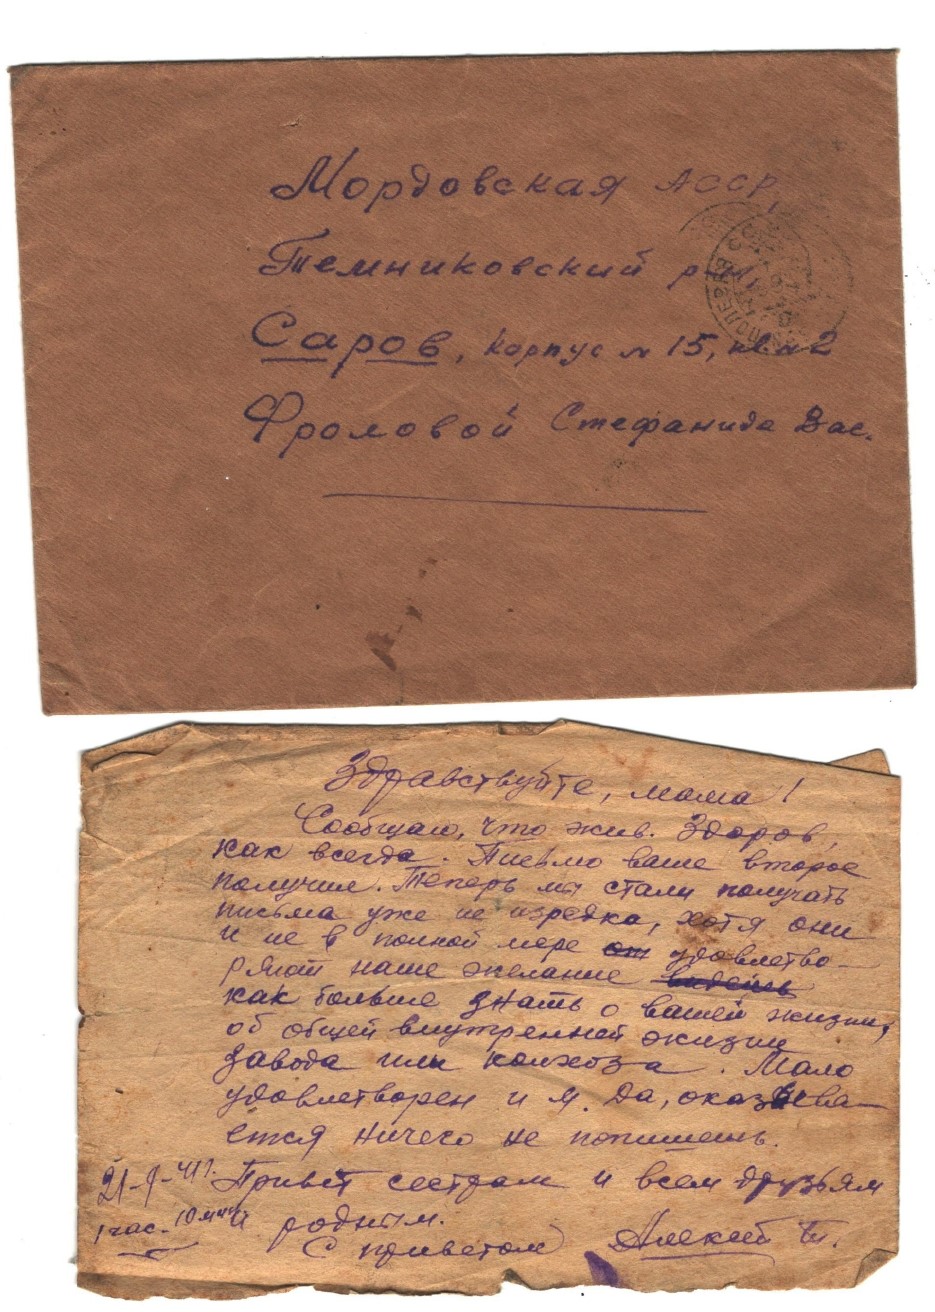 Мордовская АССР,
Темниковский р
Саров, корпус № 15, кв. № 2
Фроловой Стефанида Вас.
Здравствуйте, мама!
Сообщаю, что жив. Здоров,
как всегда. Письмо ваше второе
получил. Теперь мы стали получать
письма уже не изредка, хотя они
и не в полной мере от удовлетво-
ряют наше желание видеть
как больше знать о вашей жизни,
об общей внутренней жизни
завода или колхоза. Мало
удовлетворен и я. Да, оказыва-
ется ничего не попишешь.
Привет сестрам и всем друзьям
и родным.
С приветом Алексей Т.
21-9-41 г.
1 час. 10 мин